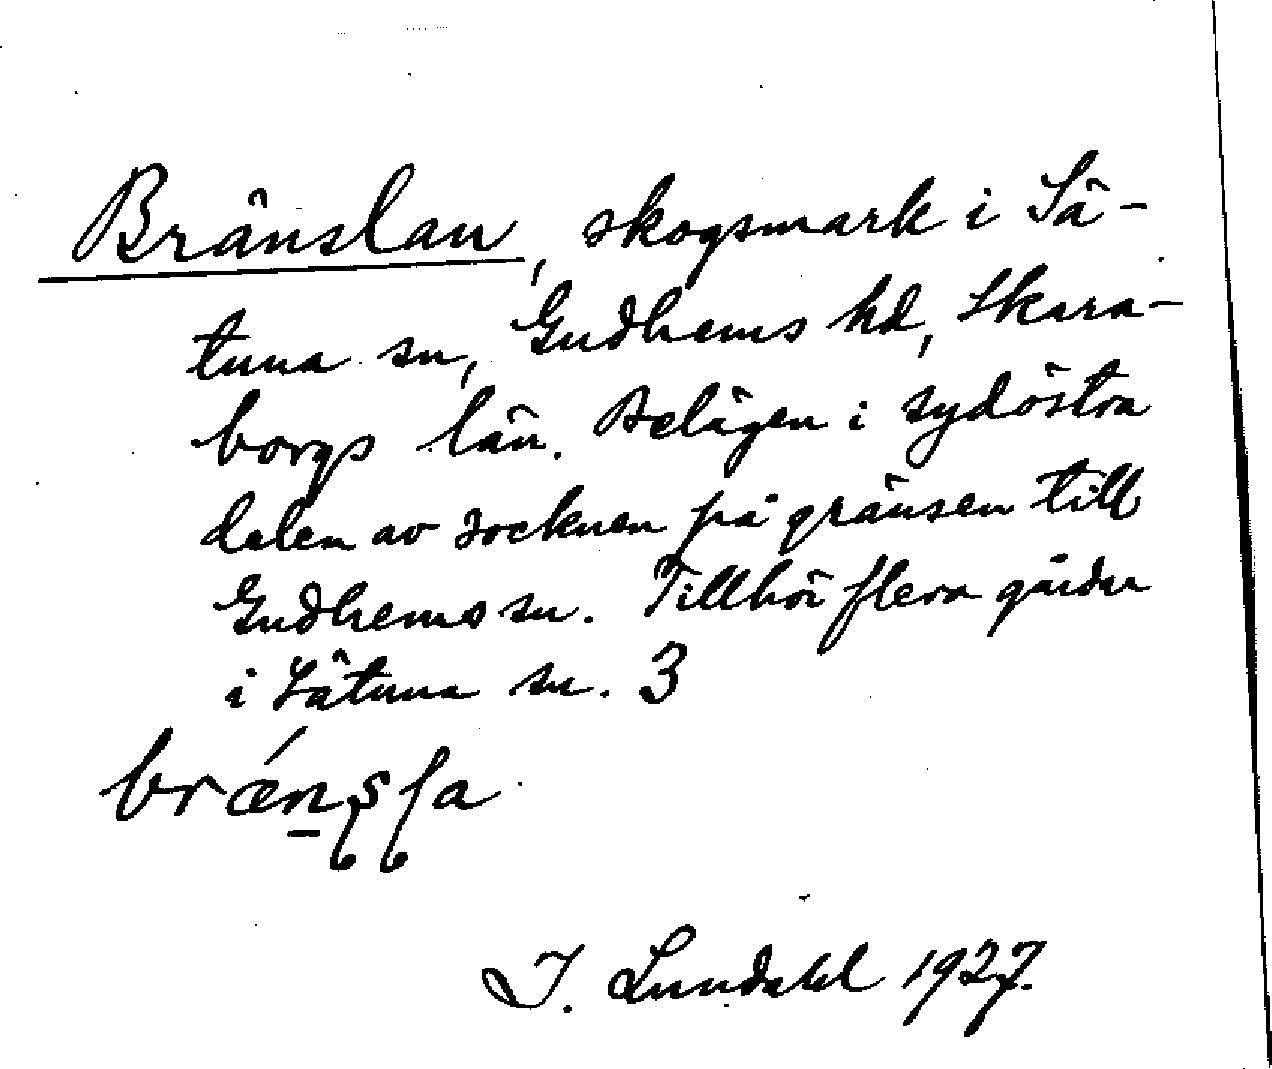 Bränslan, skogsmark i Sä-
tuna sn, Gudhems hd, Skara-
borgs län. Belägen i sydöstra
delen av socknen på gränsen till
Gudhems sn. Tillhör flera gårdar
i Sätuna sn. 3
I. Lundahl 1927.